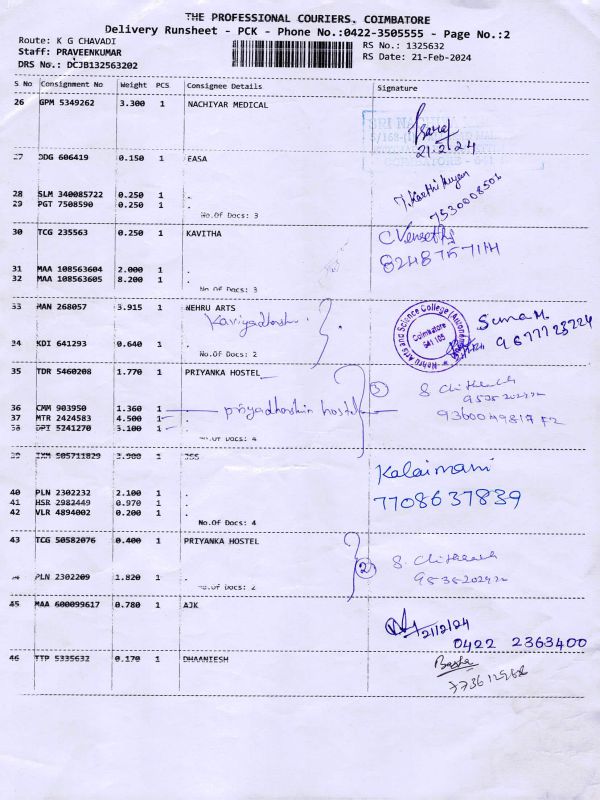 THE PROFESSIONAL COURIERS. COIMBATORE
Delivery Runsheet - PCK - Phone No.:0422-3505555 - Page No.:2
Route: K G CHAVADI
RS No.: 1325632
Staff: PRAVEENKUMAR
RS Date: 21-Feb-2024
DRS No.: DCJB132563202
S No Consignment No Weight PCS Consignee Details Signature
26 GPM 5349262 3.300 1 NACHIYAR MEDICAL
21-2-24
27 DDG 606419 0.150 1 EASA
28 SLM 340085722 0.250 1 .
29 PGT 7508590 0.250 1 .
No.Of Docs: 3
7530008506
30 TCG 235563 0.250 1 KAVITHA
31 MAA 108563604 2.000 1 .
32 MAA 108563605 8.200 1 .
No.Of Docs: 3
33 MAN 268057 3.915 1 NEHRU ARTS
Nehru Arts and Science College (Autonomous)
Coimbatore
641 105
Suna M.
9677723224
34 KDI 641293 0.640 1 .
No.Of Docs: 2
35 TDR 5460208 1.770 1 PRIYANKA HOSTEL
36 CMM 903950 1.360 1
priyadharshin hostel
37 MTR 2424583 4.500 1
38 DPT 5241270 3.100 1
No.Of Docs: 4
39 IXM 505711829 3.900 1 JSS
Kalaimani
7708637839
40 PLN 2302232 2.100 1 .
41 HSR 2982449 0.970 1 .
42 VLR 4894002 0.200 1 .
No.Of Docs: 4
43 TCG 50582076 0.400 1 PRIYANKA HOSTEL
2
44 PLN 2302209 1.820 1 .
No.Of Docs: 2
45 MAA 600099617 0.780 1 AJK
21/2/24
0422 2363400
46 TTP 5335632 0.170 1 DHAANIESH
Basha